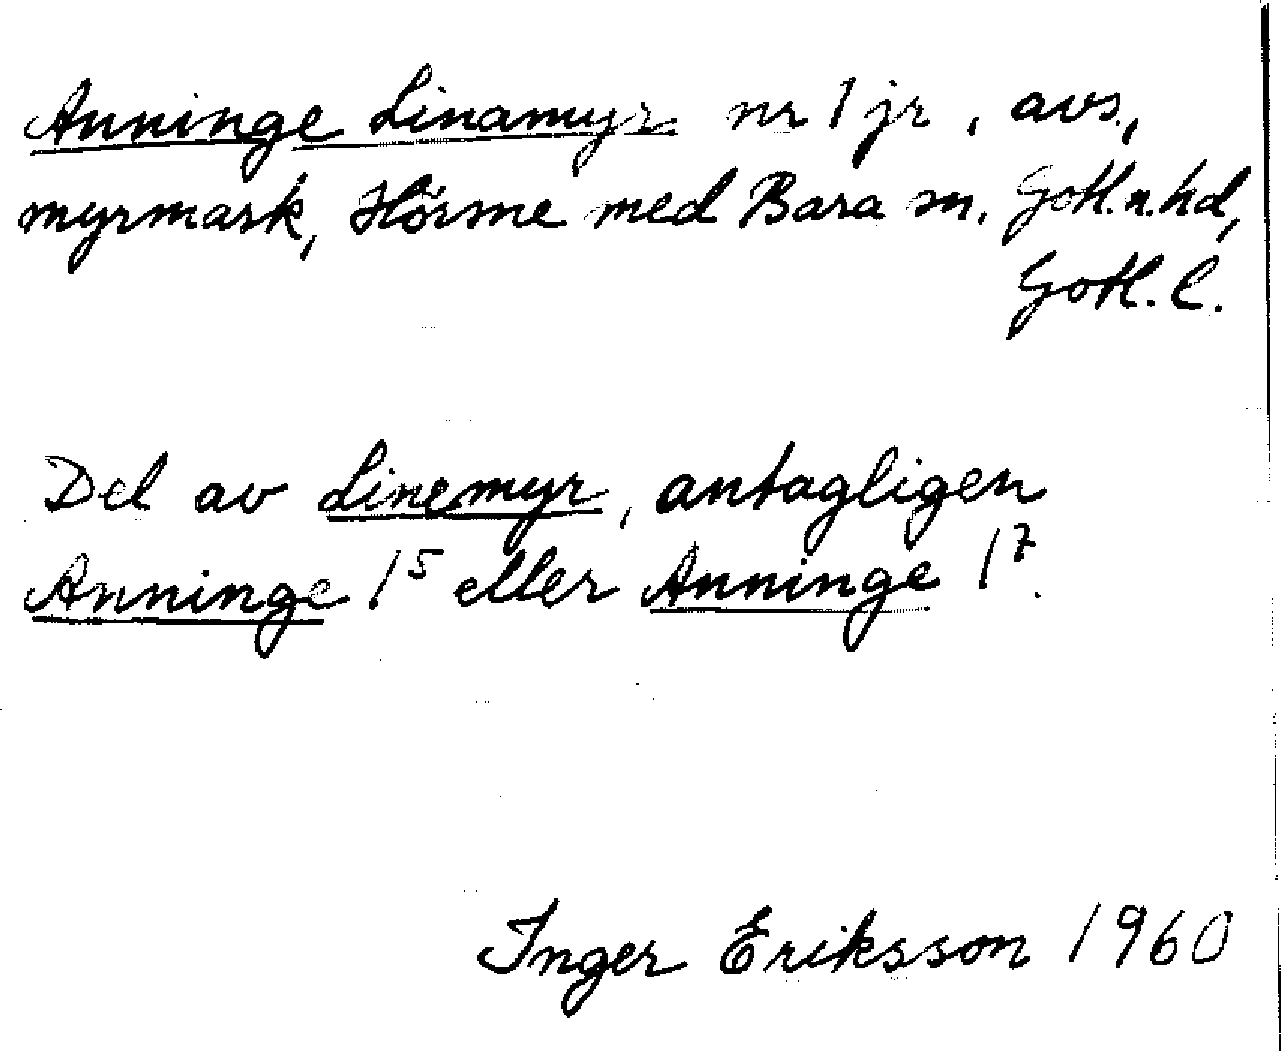 Anninge Linamyr nr 1 jr, avs.,
myrmark, Hörsne med Bara sn. Gotl.n.hd,
Gotl. l.
Del av Linemyr, antagligen
Anninge 1⁵ eller Anninge 1⁷.
Inger Eriksson 1960